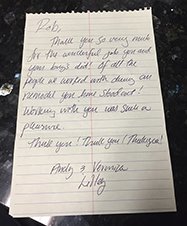 Rob,
Thank you so very much
for the wonderful job you and
your boys did! Of all the
people we worked with during our
remodel you have stood out!
Working with you was such a
pleasure.
Thank you! Thank you! Thank you!
Andy & Veronica